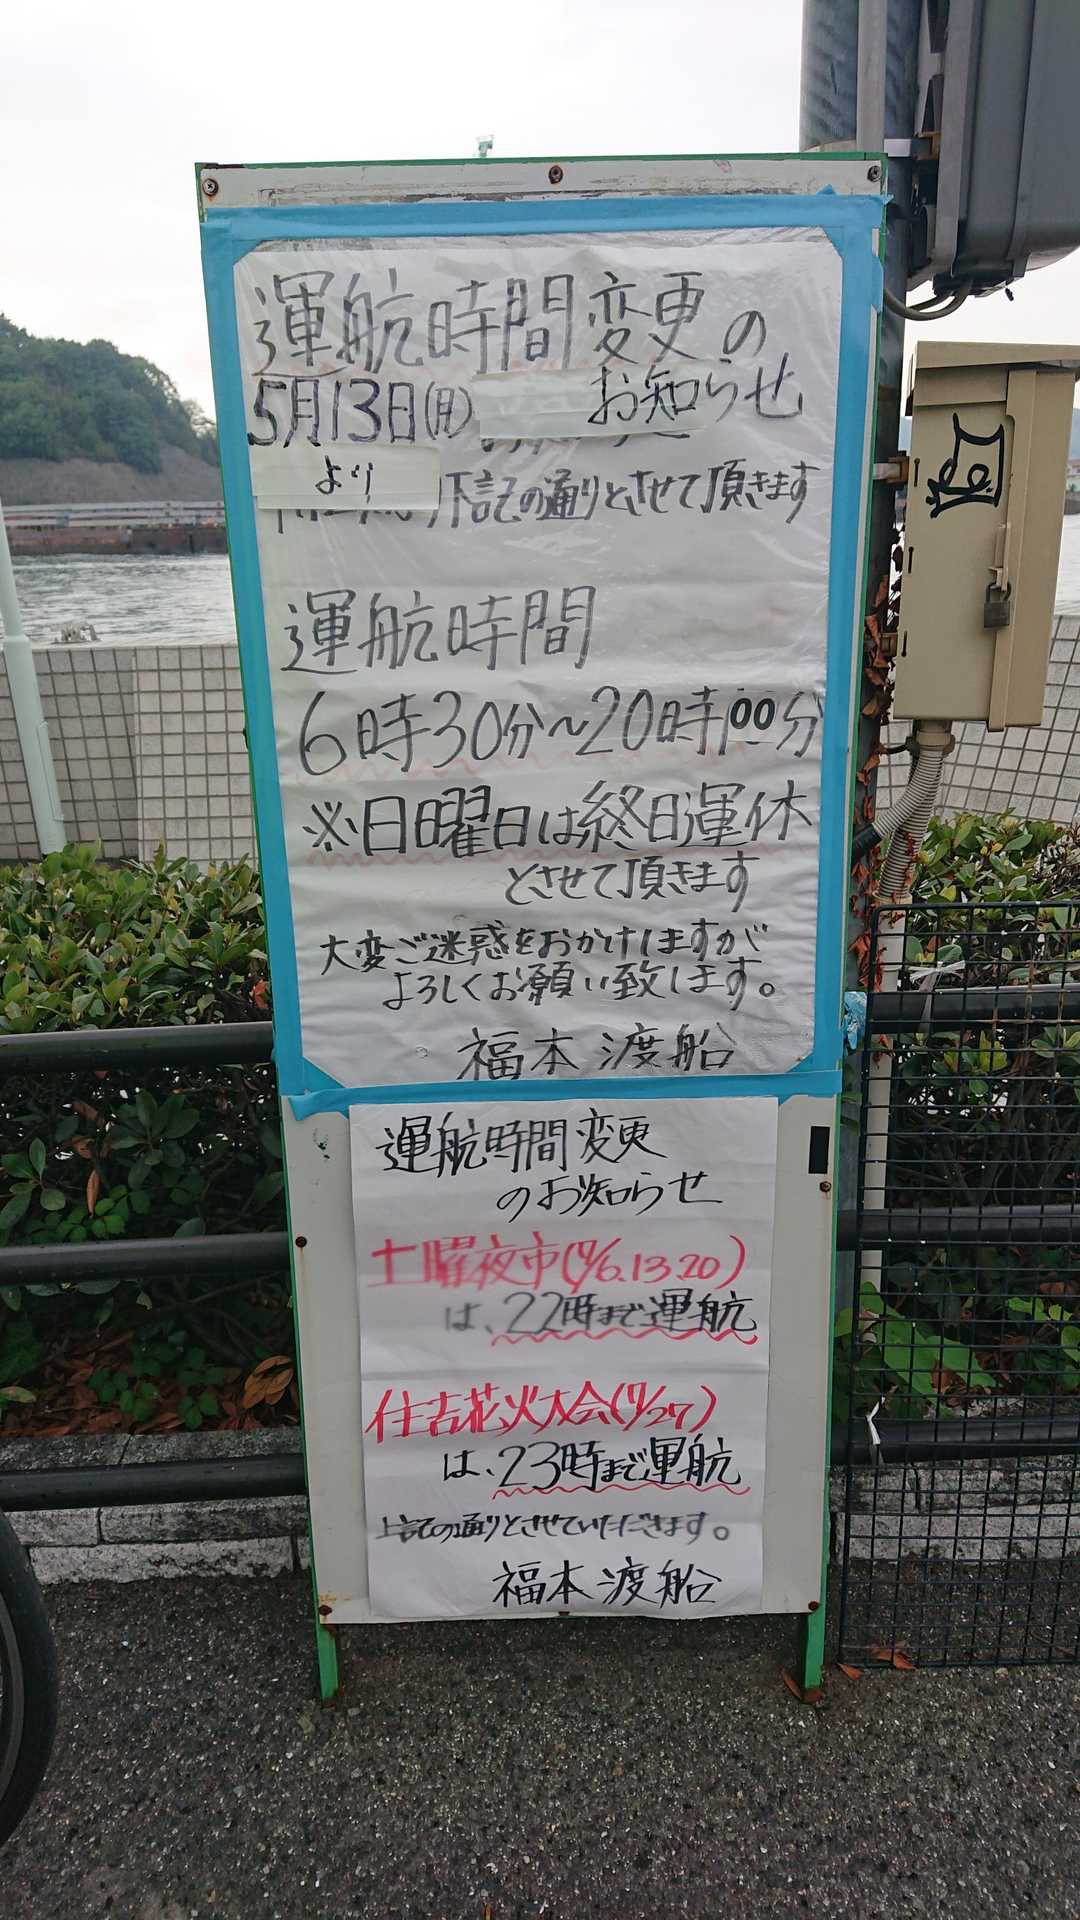 運航時間変更の
お知らせ
5月13日(月)
より
下記の通りとさせて頂きます
運航時間
6時30分~20時00分
※日曜日は終日運休
とさせて頂きます
大変ご迷惑をおかけしますが
よろしくお願い致します。
福本渡船
運航時間変更
のお知らせ
土曜夜市(7/6.13.20)
は、22時まで運航
住吉花火大会(7/27)
は、23時まで運航
上記の通りとさせていただきます。
福本渡船